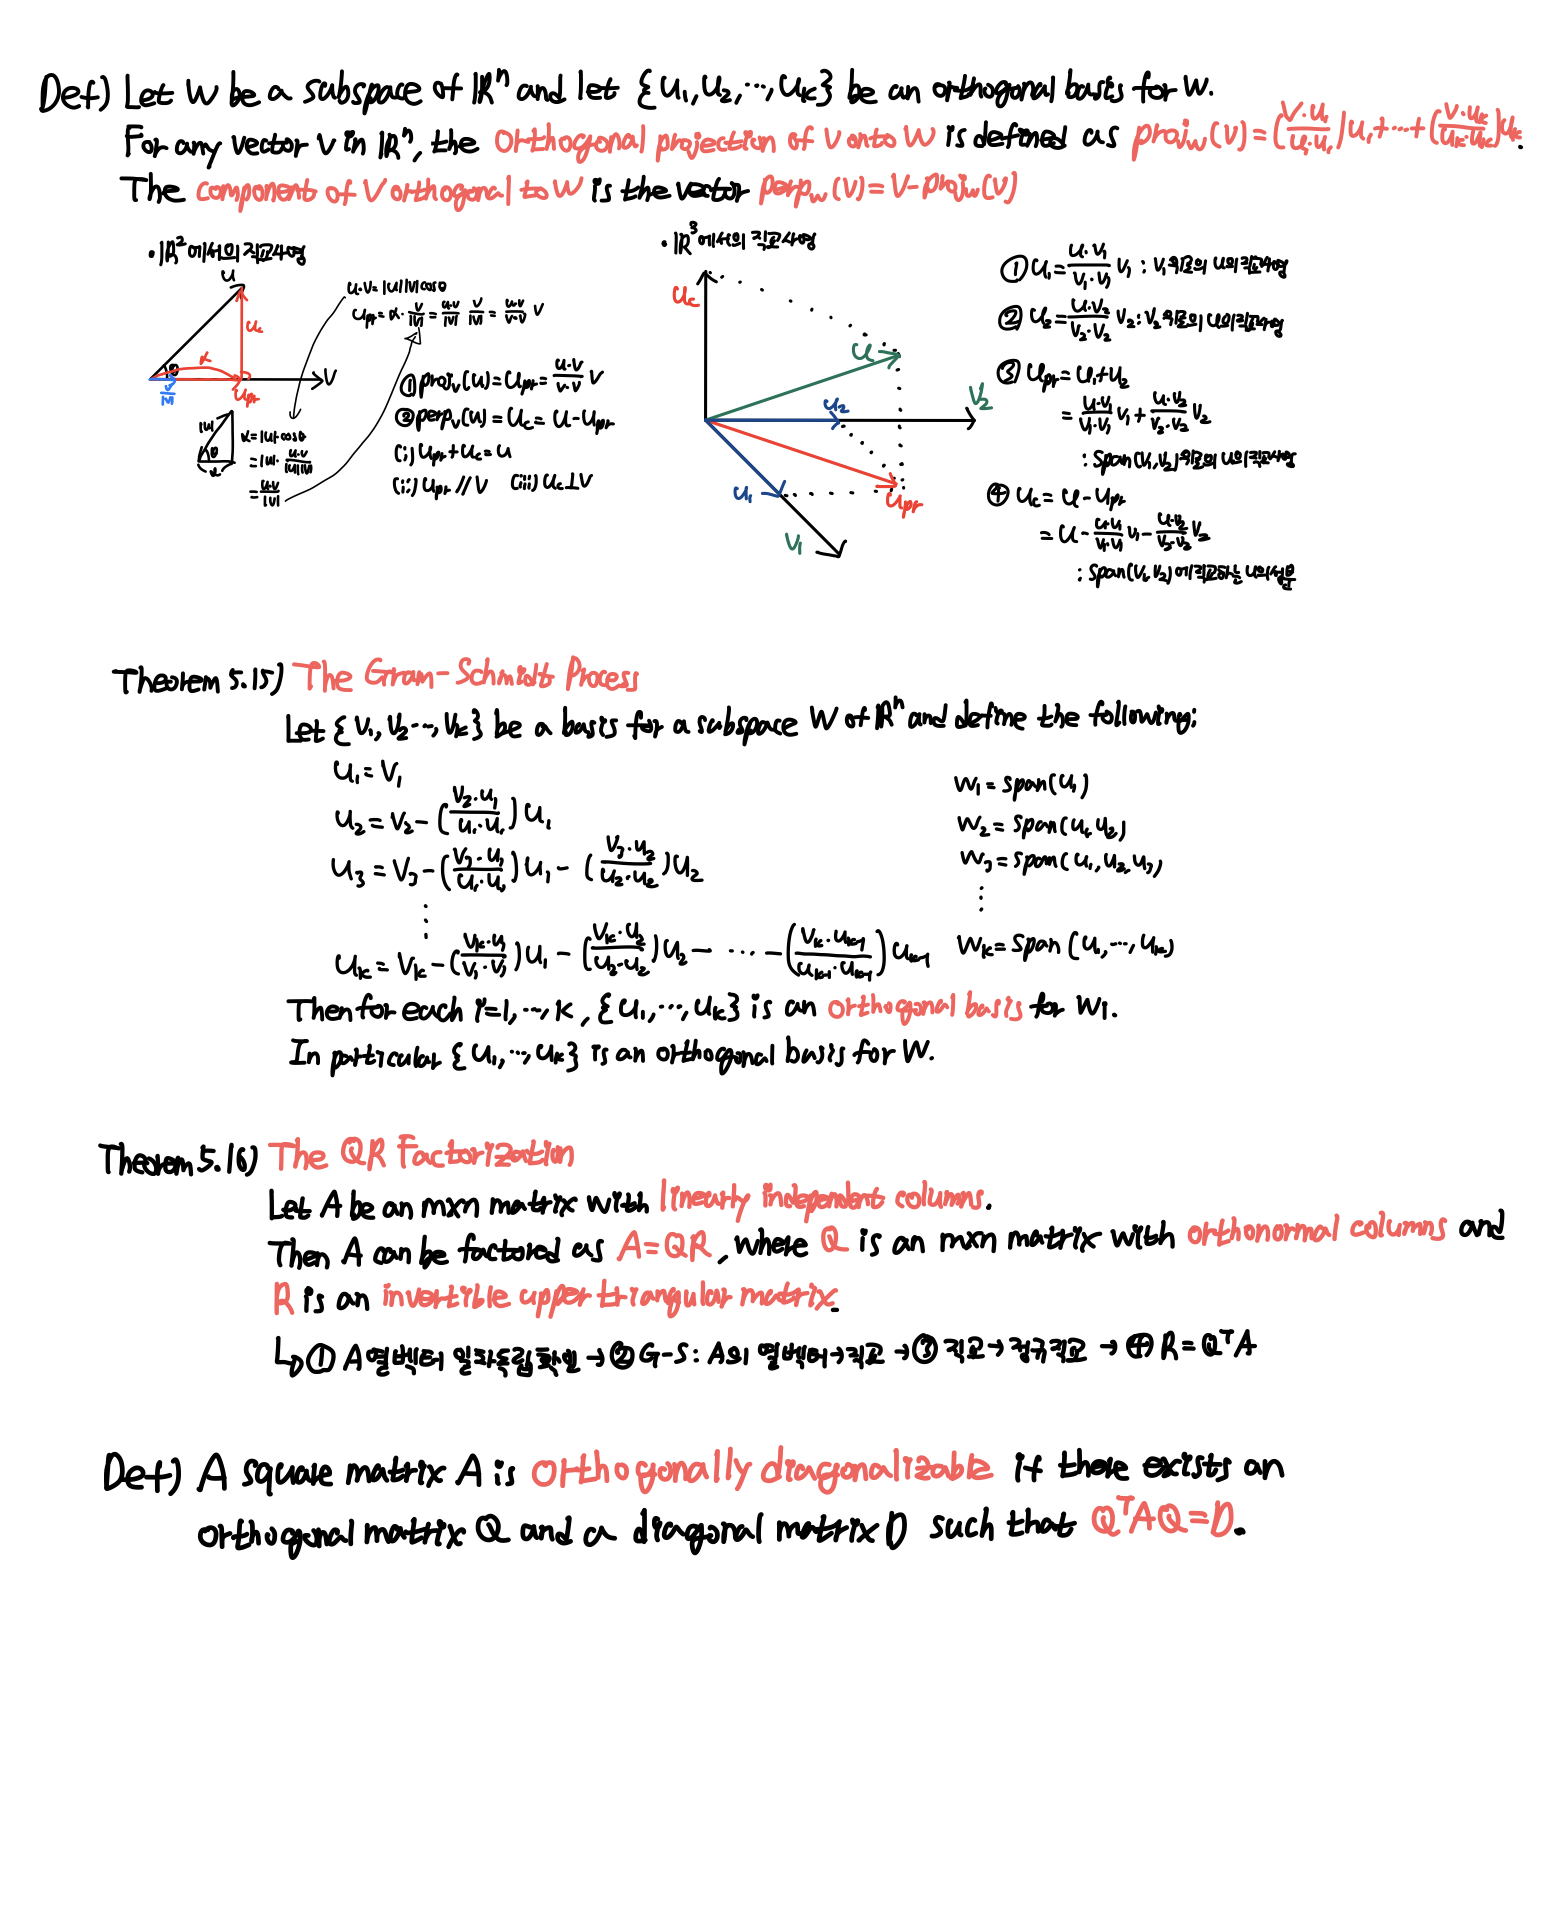 Def) Let W be a subspace of ℝⁿ and let {u₁, u₂, ⋯, uₖ} be an orthogonal basis for W.
For any vector v in ℝⁿ, the orthogonal projection of v onto W is defined as proj_w(v) = (v·u₁/u₁·u₁)u₁ + ⋯ + (v·uₖ/uₖ·uₖ)uₖ.
The component of v orthogonal to W is the vector perp_w(v) = v - proj_w(v)
· ℝ²에서의 직교사영
u
u_c
α
θ
v
v/|v|
u_pr
|u|
θ
α
α = |u| cosθ
= |u| · u·v/|u||v|
= u·v/|v|
u·v = |u||v|cosθ
u_pr = α · v/|v| = u·v/|v| v/|v| = u·v/v·v v
① proj_v(u) = u_pr = u·v/v·v v
② perp_v(u) = u_c = u - u_pr
(i) u_pr + u_c = u
(ii) u_pr // v (iii) u_c ⊥ v
· ℝ³에서의 직교사영
u_c
u
v₂
u₂
u₁
u_pr
v₁
① u₁ = u·v₁/v₁·v₁ v₁ : v₁ 위로의 u의 직교사영
② u₂ = u·v₂/v₂·v₂ v₂ : v₂ 위로의 u의 직교사영
③ u_pr = u₁ + u₂
= u·v₁/v₁·v₁ v₁ + u·v₂/v₂·v₂ v₂
: span(v₁, v₂) 위로의 u의 직교사영
④ u_c = u - u_pr
= u - u·v₁/v₁·v₁ v₁ - u·v₂/v₂·v₂ v₂
: span(v₁, v₂)에 직교하는 u의 성분
Theorem 5.15) The Gram-Schmidt Process
Let {v₁, v₂ ⋯, vₖ} be a basis for a subspace W of ℝⁿ and define the following;
u₁ = v₁
w₁ = span(u₁)
u₂ = v₂ - (v₂·u₁/u₁·u₁)u₁
w₂ = span(u₁, u₂)
u₃ = v₃ - (v₃·u₁/u₁·u₁)u₁ - (v₃·u₂/u₂·u₂)u₂
w₃ = span(u₁, u₂, u₃)
⋮
⋮
uₖ = vₖ - (vₖ·u₁/v₁·v₁)u₁ - (vₖ·u₂/u₂·u₂)u₂ - ⋯ - (vₖ·uₖ₋₁/uₖ₋₁·uₖ₋₁)uₖ₋₁
wₖ = span(u₁, ⋯, uₖ)
Then for each i=1, ⋯, k, {u₁, ⋯, uₖ} is an orthogonal basis for Wi.
In particular {u₁, ⋯, uₖ} is an orthogonal basis for W.
Theorem 5.16) The QR Factorization
Let A be an mxn matrix with linearly independent columns.
Then A can be factored as A=QR, where Q is an mxn matrix with orthonormal columns and
R is an invertible upper triangular matrix.
↳ ① A 열벡터 일차독립확인 → ② G-S: A의 열벡터→직교 → ③ 직교→정규직교 → ④ R=QᵀA
Def) A square matrix A is orthogonally diagonalizable if there exists an
orthogonal matrix Q and a diagonal matrix D such that QᵀAQ=D.